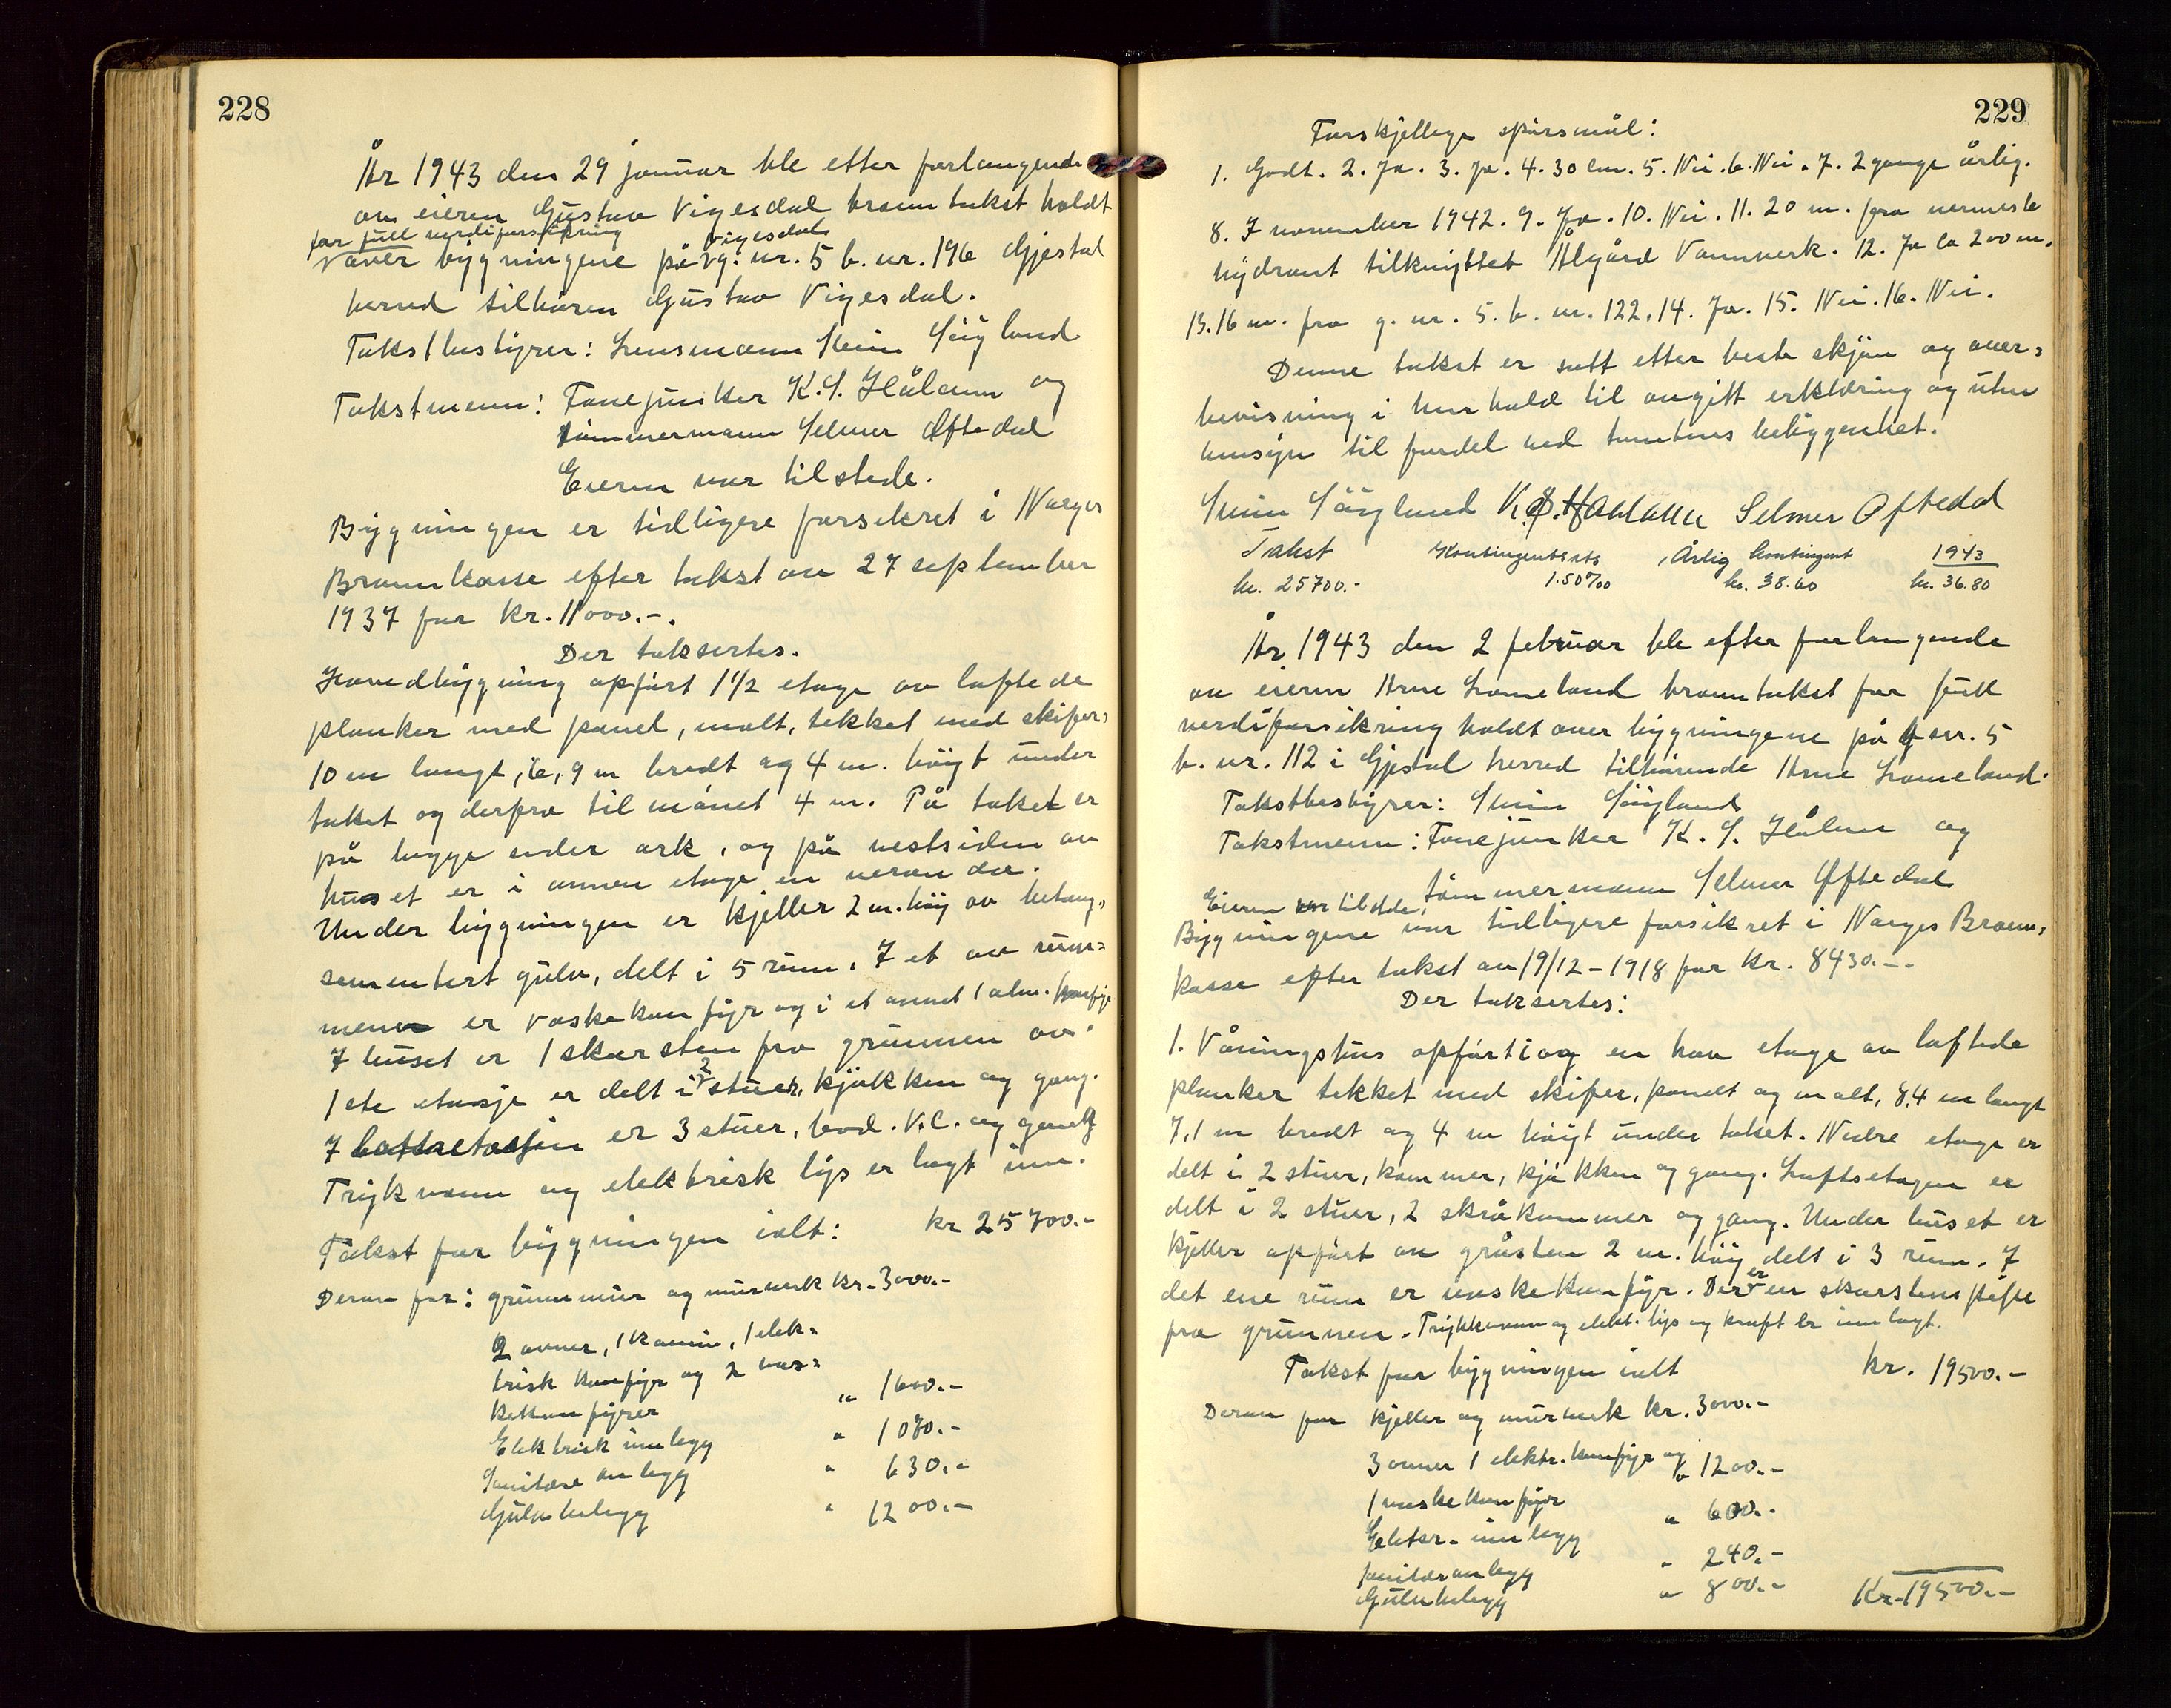 228
År 1943 den 29 januar ble etter forlangende
av eieren Gustav Vigesdal branntakst holdt
for full verdiforsikring Vigesdal
over bygningene på g. nr. 5 b. nr. 196 Gjestal
herred tilhören Gustav Vigesdal.
Takstbestyrer: Lensmann Sküm Söyland
Takstmenn: Fanejunker K. S. Håland og
tömmermann Selmer Oftedal
Eieren var tilstede.
Bygningen er tidligere forsikret i Norges
Brannkasse efter takst av 27 september
1937 for kr. 11000.-.
Der taksertes.
Hovedbygning opfört 1 1/2 etage av laftede
planker med panel, malt, tekket med skifer,
10 m langt, 6,9 m bredt og 4 m. höyt under
taket og derfra til mönet 4 m. På taket er
på begge sider ark, og på vestsiden av
huset er i annen etage en veranda.
Under bygningen er kjeller 2 m. höy av betong,
sementert gulv, delt i 5 rum. I et av rum=
mene er vaskekomfyr og i et annet 1 alm. komfyr
I huset er 1 skorsten fra grunnen av.
1ste etasje er delt i 2 stuer, kjökken og gang.
I loftsetasjen er 3 stuer, bod. V.C. og gang
Trykvann og elektrisk lys er lagt inn.
Takst for bygningen ialt: kr 25700.-
Derav for: grunnmur og murverk kr. 3000.-
2 ovner, 1 kamin, 1 elek=
trisk komfyr og 2 vas=
kekomfyrer " 1600.-
Elektrisk innlegg " 1070.-
Sanitære anlegg " 630.-
Gulvbelegg " 1200.-
229
Forskjellige spörsmål:
1. Godt. 2. Ja. 3. Ja. 4. 30 cm. 5. Nei. 6. Nei. 7. 2 gange årlig.
8. 7 november 1942. 9. Ja. 10. Nei. 11. 20 m. fra nermeste
hydrant tilknyttet Ålgård Vannverk. 12. Ja ca 200 m.
13. 16 m. fra g. nr. 5. b. nr. 122. 14. Ja. 15. Nei. 16. Nei.
Denne takst er satt etter beste skjön og over=
bevisning i henhold til avgitt erklæring og uten
hensyn til fordel ved tomtens beliggenhet.
Söyland K. S. Haaland Selmer Oftedal
Takst Kontingentsats Årlig kontingent 1943
kr. 25700.- 1.50‰ kr. 38.60 kr. 36.80
År 1943 den 2 februar ble efter forlangende
av eieren Arne Lomeland branntakst for full
verdiforsikring holdt over bygningene på g nr. 5
b. nr. 112 i Gjestal herred tilhörende Arne Lomeland.
Takstbestyrer: Söyland
Takstmenn: Fanejunker K. S. Håland og
Eieren var tilstede. tömmermann Selmer Oftedal
Bygningene var tidligere forsikret i Norges Brann,
kasse efter takst av 19/12-1918 for kr. 8430.-.
Der taksertes:
1. Våningshus opfört i og en halv etage av laftede
planker tekket med skifer, panelt og malt, 8,4 m langt
7,1 m bredt og 4 m höyt under taket. Nedre etage er
delt i 2 stuer, kammer, kjökken og gang. Loftsetagen er
delt i 2 stuer, 2 skråkammer og gang. Under huset er
kjeller opfört av gråsten 2 m. höy delt i 3 rum. I
det ene rum er vaskekomfyr. Der er en skorstenspipe
fra grunnen. Trykkvann og elekt. lys og kraft er innlagt.
Takst for bygningen ialt kr. 19500.-
Derav for kjeller og murverk kr. 3000.-
3 ovner 1 elektr. komfyr og
1 vaskekomfyr " 1200.-
Elektr. innlegg " 600.-
Sanitæranlegg " 240.-
Gulvbelegg " 800.- Kr. 19500.-